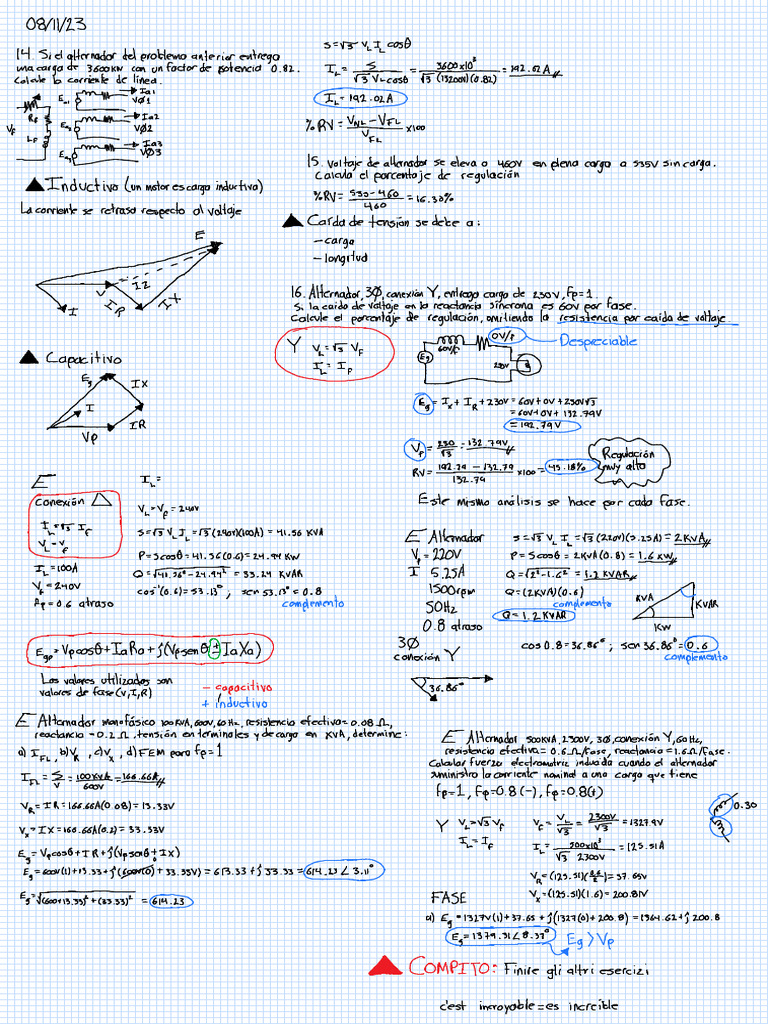 08/11/23
14. Si el alternador del problema anterior entrega
una carga de 3600kW con un factor de potencia 0.82.
Calcule la corriente de línea.
Rf
Vf
Lf
Ea1
Ia1
VØ1
Ea2
Ia2
VØ2
Ea3
Ia3
VØ3
Inductivo (un motor es carga inductiva)
La corriente se retrasa respecto al voltaje
E
V
IZ
I
IR
IX
Capacitivo
Eg
IX
I
IR
Vp
S=√3 VL IL cosθ
IL = S / √3 VL cosθ = 3600x10³ / √3 (13200V)(0.82) = 192.02A
IL = 192.02A
%RV = VNL - VFL / VFL x100
15. Voltaje de alternador se eleva a 460V en plena carga a 535V sin carga.
Calcula el porcentaje de regulación
%RV = 530-460 / 460 = 16.30%
Caída de tensión se debe a:
- carga
- longitud
16. Alternador, 3Ø, conexión Y, entrega carga de 230V, fp=1.
Si la caída de voltaje en la reactancia síncrona es 60V por fase.
Calcule el porcentaje de regulación, omitiendo la resistencia por caída de voltaje
Y VL=√3 Vf
IL = If
Eg
60V/f
0V/f
230V
Despreciable
Eg = Ix + IR + 230V = 60V + 0V + 230V√3
= 60V + 0V + 132.79V
= 192.79V
Vf = 230 / √3 = 132.79V
RV = 192.79 - 132.79 / 132.79 x100 = 45.18%
Regulación
muy alta
Este mismo análisis se hace por cada fase.
E
conexión △
IL = √3 If
VL = Vf
IL = 100A
Vf = 240V
Ap = 0.6 atraso
IL =
VL = Vf = 240V
S = √3 VL IL = √3 (240V)(100A) = 41.56 KVA
P = S cosθ = 41.56 (0.6) = 24.94 KW
Q = √41.56² - 24.94² = 33.24 KVAR
cos⁻¹(0.6) = 53.13° ; sen 53.13° = 0.8
complemento
Egp = Vp cosθ + IaRa + j(Vp senθ ± IaXa)
Los valores utilizados son
valores de fase (V, I, R)
- capacitivo
+ inductivo
E Alternador
Vf = 220V
I 5.25A
1500rpm
50Hz
0.8 atraso
3Ø
conexión Y
S = √3 VL IL = √3 (220V)(5.25A) = 2KVA
P = S cosθ = 2KVA (0.8) = 1.6 KW
Q = √2² - 1.6² = 1.2 KVAR
Q = (2KVA)(0.6)
complemento
Q = 1.2 KVAR
KVA
KVAR
KW
cos 0.8 = 36.86° ; sen 36.86° = 0.6
complemento
36.86°
E Alternador monofásico 100KVA, 600V, 60Hz, resistencia efectiva = 0.08 Ω,
reactancia = 0.2 Ω. tensión en terminales y de carga en KVA, determine:
a) IFL, b) VR, c) VX, d) FEM para fp=1
IFL = S / V = 100KVA / 600V = 166.66A
VR = IR = 166.66A (0.08) = 13.33V
VX = IX = 166.66A (0.2) = 33.33V
Eg = Vp cosθ + IR + j(Vp senθ + IX)
Eg = 600V(1) + 13.33 + j(600V(0) + 33.33V) = 613.33 + j 33.33 = 614.23 ∠ 3.11°
Eg = √(600+13.33)² + (33.33)² = 614.23
E Alternador 500KVA, 2300V, 3Ø, conexión Y, 60Hz,
resistencia efectiva = 0.6Ω/fase, reactancia = 1.6Ω/fase.
Calcular fuerza electromotriz inducida cuando el alternador
suministra la corriente nominal a una carga que tiene
fp=1, Fp=0.8 (-), Fp=0.8(+)
Y VL = √3 Vf
IL = If
VF = VL / √3 = 2300V / √3 = 1327.9V
IL = 500x10³ / √3 2300V = 125.51A
0.30
VR = (125.51)(0.6/2) = 37.65V
VX = (125.51)(1.6) = 200.81V
FASE
a) Eg = 1327V(1) + 37.65 + j(1327(0) + 200.8) = 1364.62 + j 200.8
Eg = 1379.31 ∠ 8.37°
Eg > Vp
COMPITO: Finire gli altri esercizi
c'est incroyable = es increíble